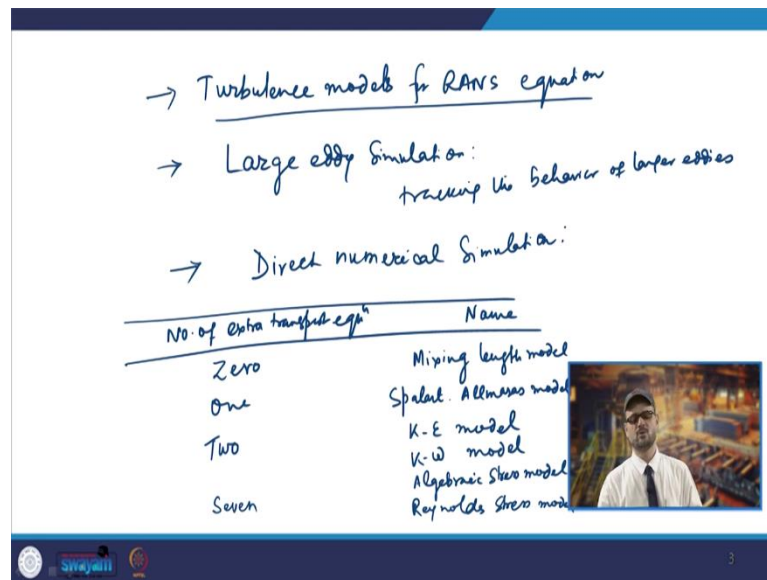 → Turbulence models for RANS equation
→ Large eddy Simulation:
tracking the behavior of larger eddies
→ Direct numerical Simulation:
No. of extra transport equⁿ Name
Zero Mixing length model
One Spalart. Allmaras model
Two K-ε model
K-ω model
Algebraic Stress model
Seven Reynolds Stress model
swayam 3